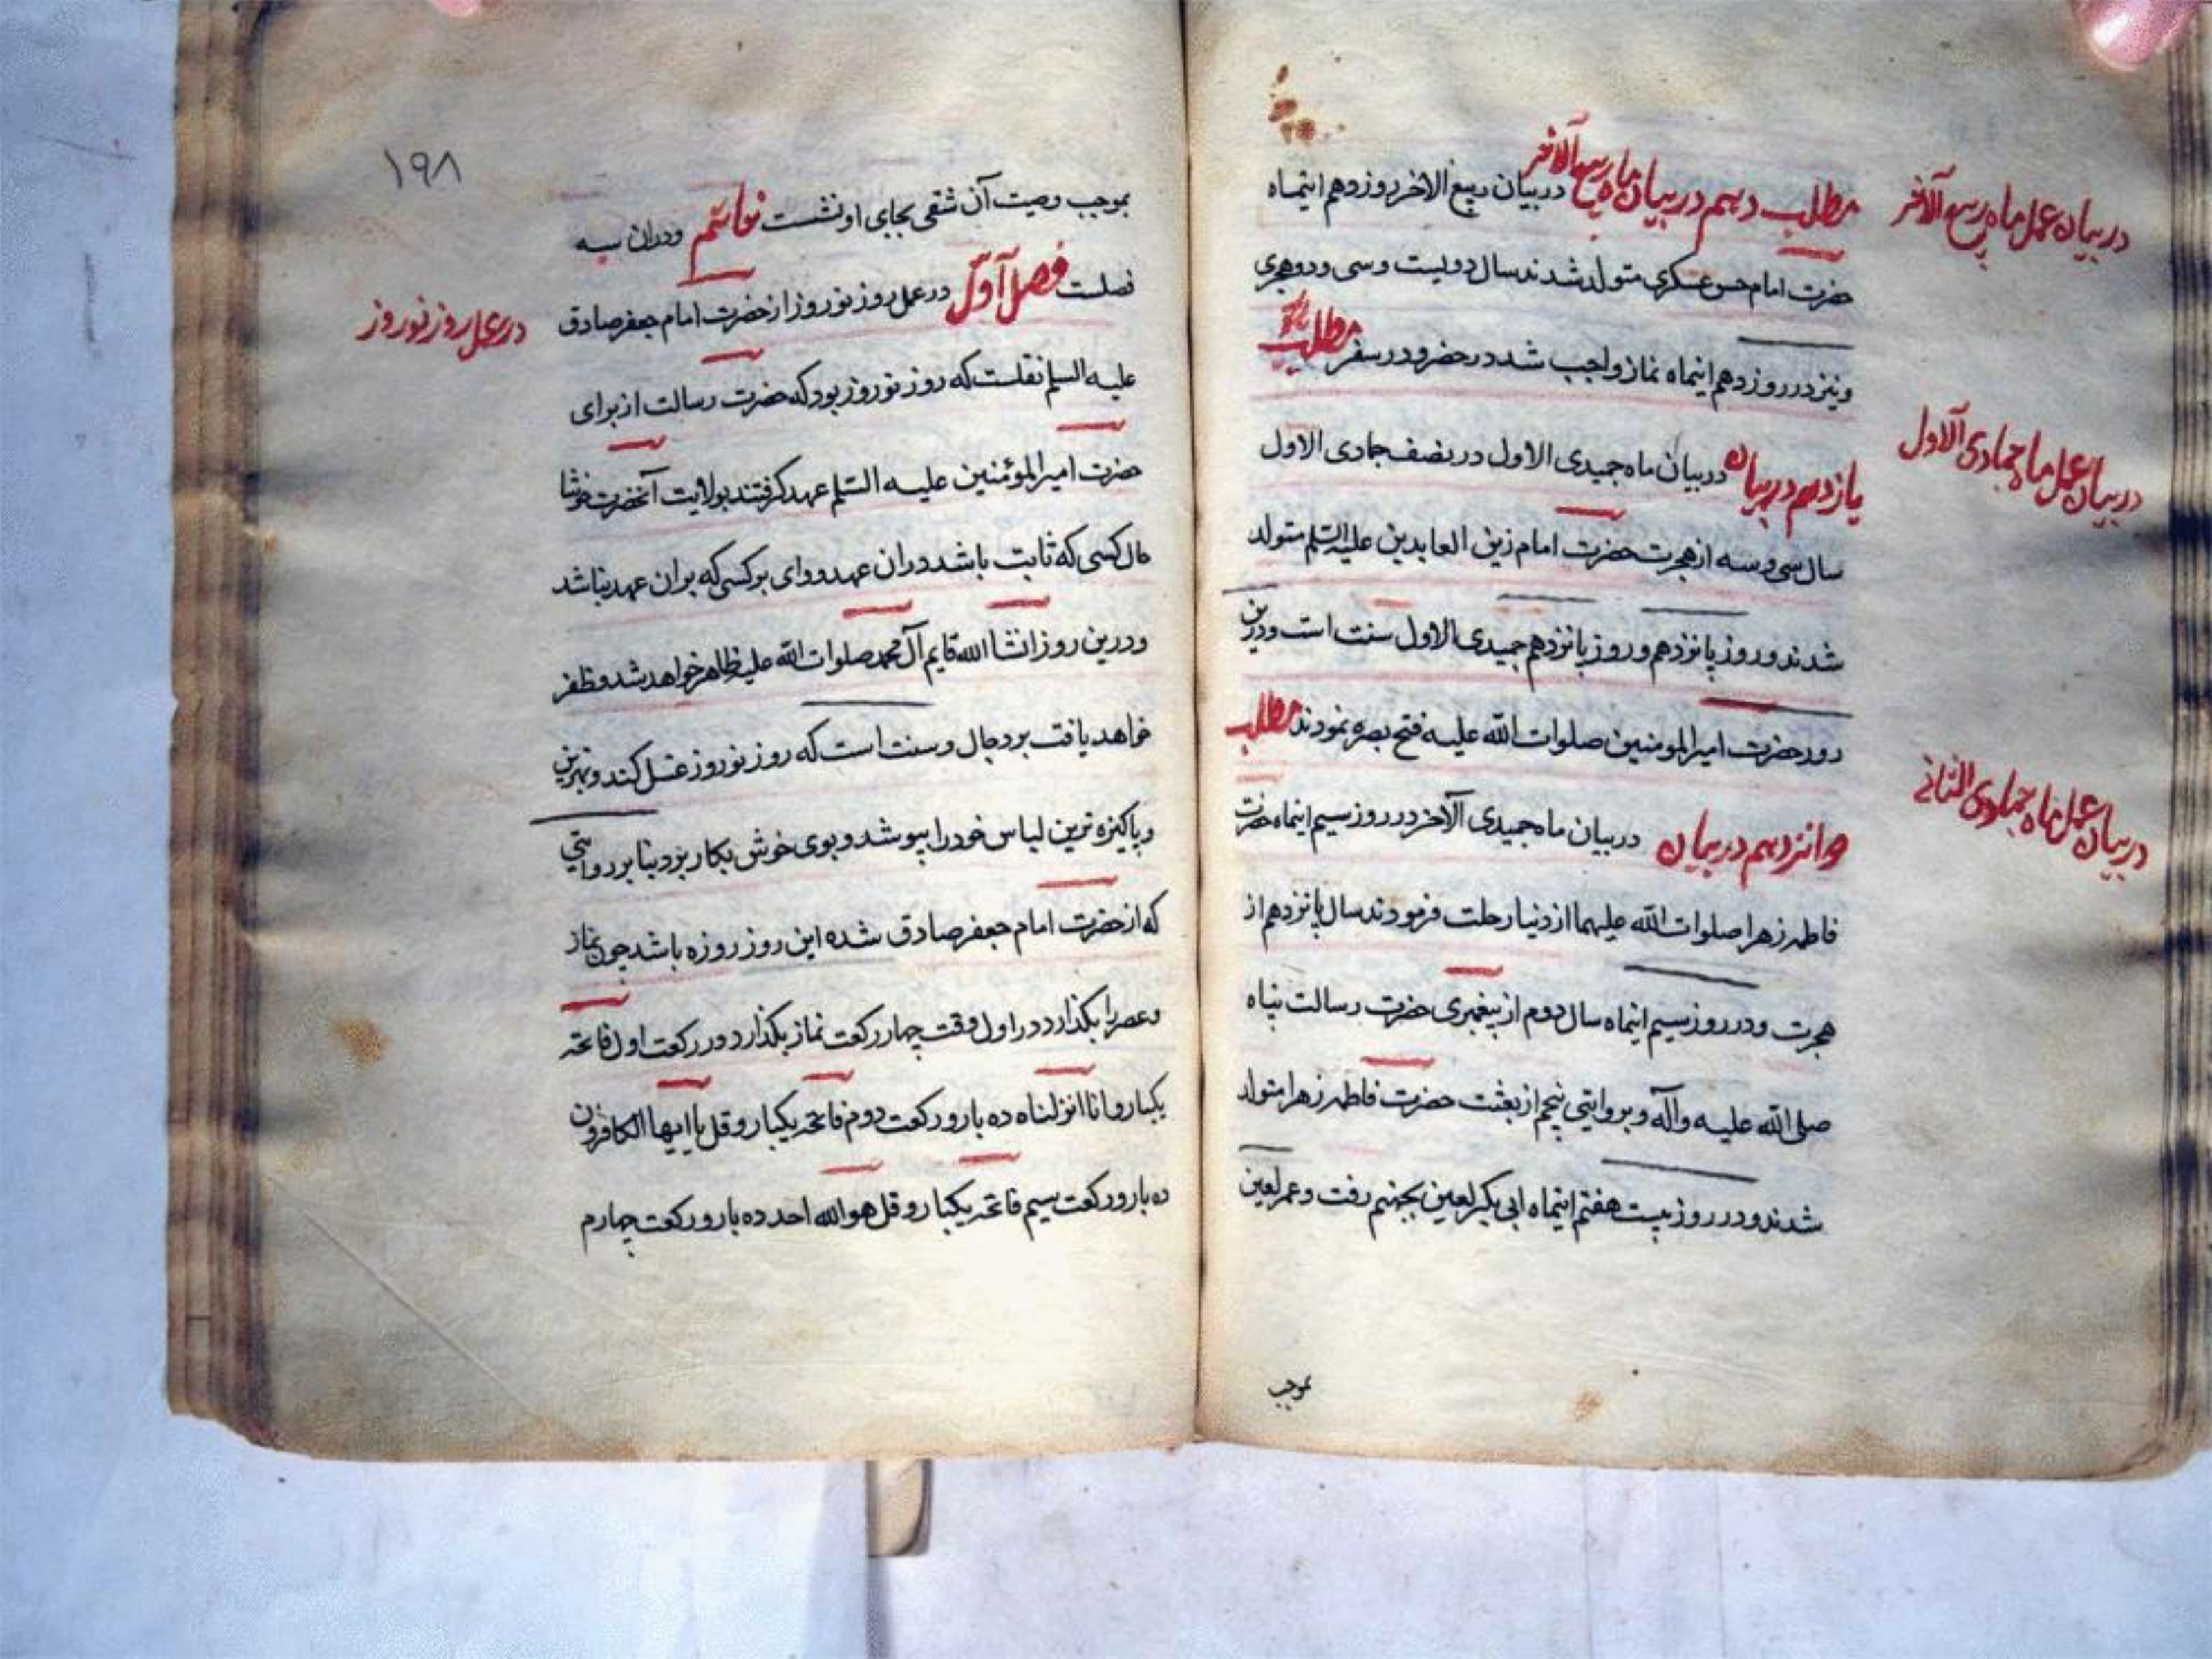 در بیان عمل ماه ربیع الآخر
مطلب دهم در بیان ماه ربیع الآخر در بیان ربیع الاخر روز دهم اینماه
حضرت امام حسن عسکری متولد شدند سال دویست و سی و دو هجری
و نیز در روز دهم اینماه نماز واجب شد در حضر و در سفر مطلب
در بیان عمل ماه جمادی الاول
یازدهم در بیان در بیان ماه جمیدی الاول در نصف جمادی الاول
سال سی و سه از هجرت حضرت امام زین العابدین علیه السّلم متولد
شدند و روز پانزدهم و روز پانزدهم جمیدی الاول سنت است و درین
روز حضرت امیرالمومنین صلوات اللّه علیه فتح بصره نمودند مطلب
در بیان عمل ماه جمادی الثانی
دوانزدهم در بیان در بیان ماه جمیدی الآخر در روز سیم اینماه حضرت
فاطمه زهرا صلوات اللّه علیهما از دنیا رحلت فرمودند سال پانزدهم از
هجرت و در روز بیستم اینماه سال دوم از پیغمبری حضرت رسالت پناه
صلی اللّه علیه و آله و بروایتی پنجم از بعثت حضرت فاطمه زهرا متولد
شدند و در روز بیست هفتم اینماه ابی بکر لعین بجهنم رفت و عمر لعین
بموجب
۱۹۸
بموجب وصیت آن شقی بجای او نشست خواتیم و دران سه
فصلست فصل اول در عمل روز نوروز از حضرت امام جعفر صادق
در عمل روز نوروز
علیه السلم نقلست که روز نوروز بود که حضرت رسالت از برای
حضرت امیرالمؤمنین علیه السّلم عهد گرفتند بولایت آنحضرت خوشا
حال کسی که ثابت باشد دران عهد و وای بر کسی که بران عهد نباشد
و درین روز انشاالله قایم آل محمد صلوات اللّه علیه ظاهر خواهد شد و ظفر
خواهد یافت بر دجال و سنت است که روز نوروز غسل کند و بهترین
و پاکیزه ترین لباس خود را بپوشد و بوی خوش بکار برد بنابر روایتی
که از حضرت امام جعفر صادق شده این روز روزه باشد چون نماز
و عصر را بگذارد در اول وقت چهار رکعت نماز بگذارد در رکعت اول فاتحه
یکبار و انا انزلناه ده بار و رکعت دوم فاتحه یکبار و قل یا ایها الکافرون
ده بار و رکعت سیم فاتحه یکبار و قل هو الله احد ده بار و رکعت چهارم